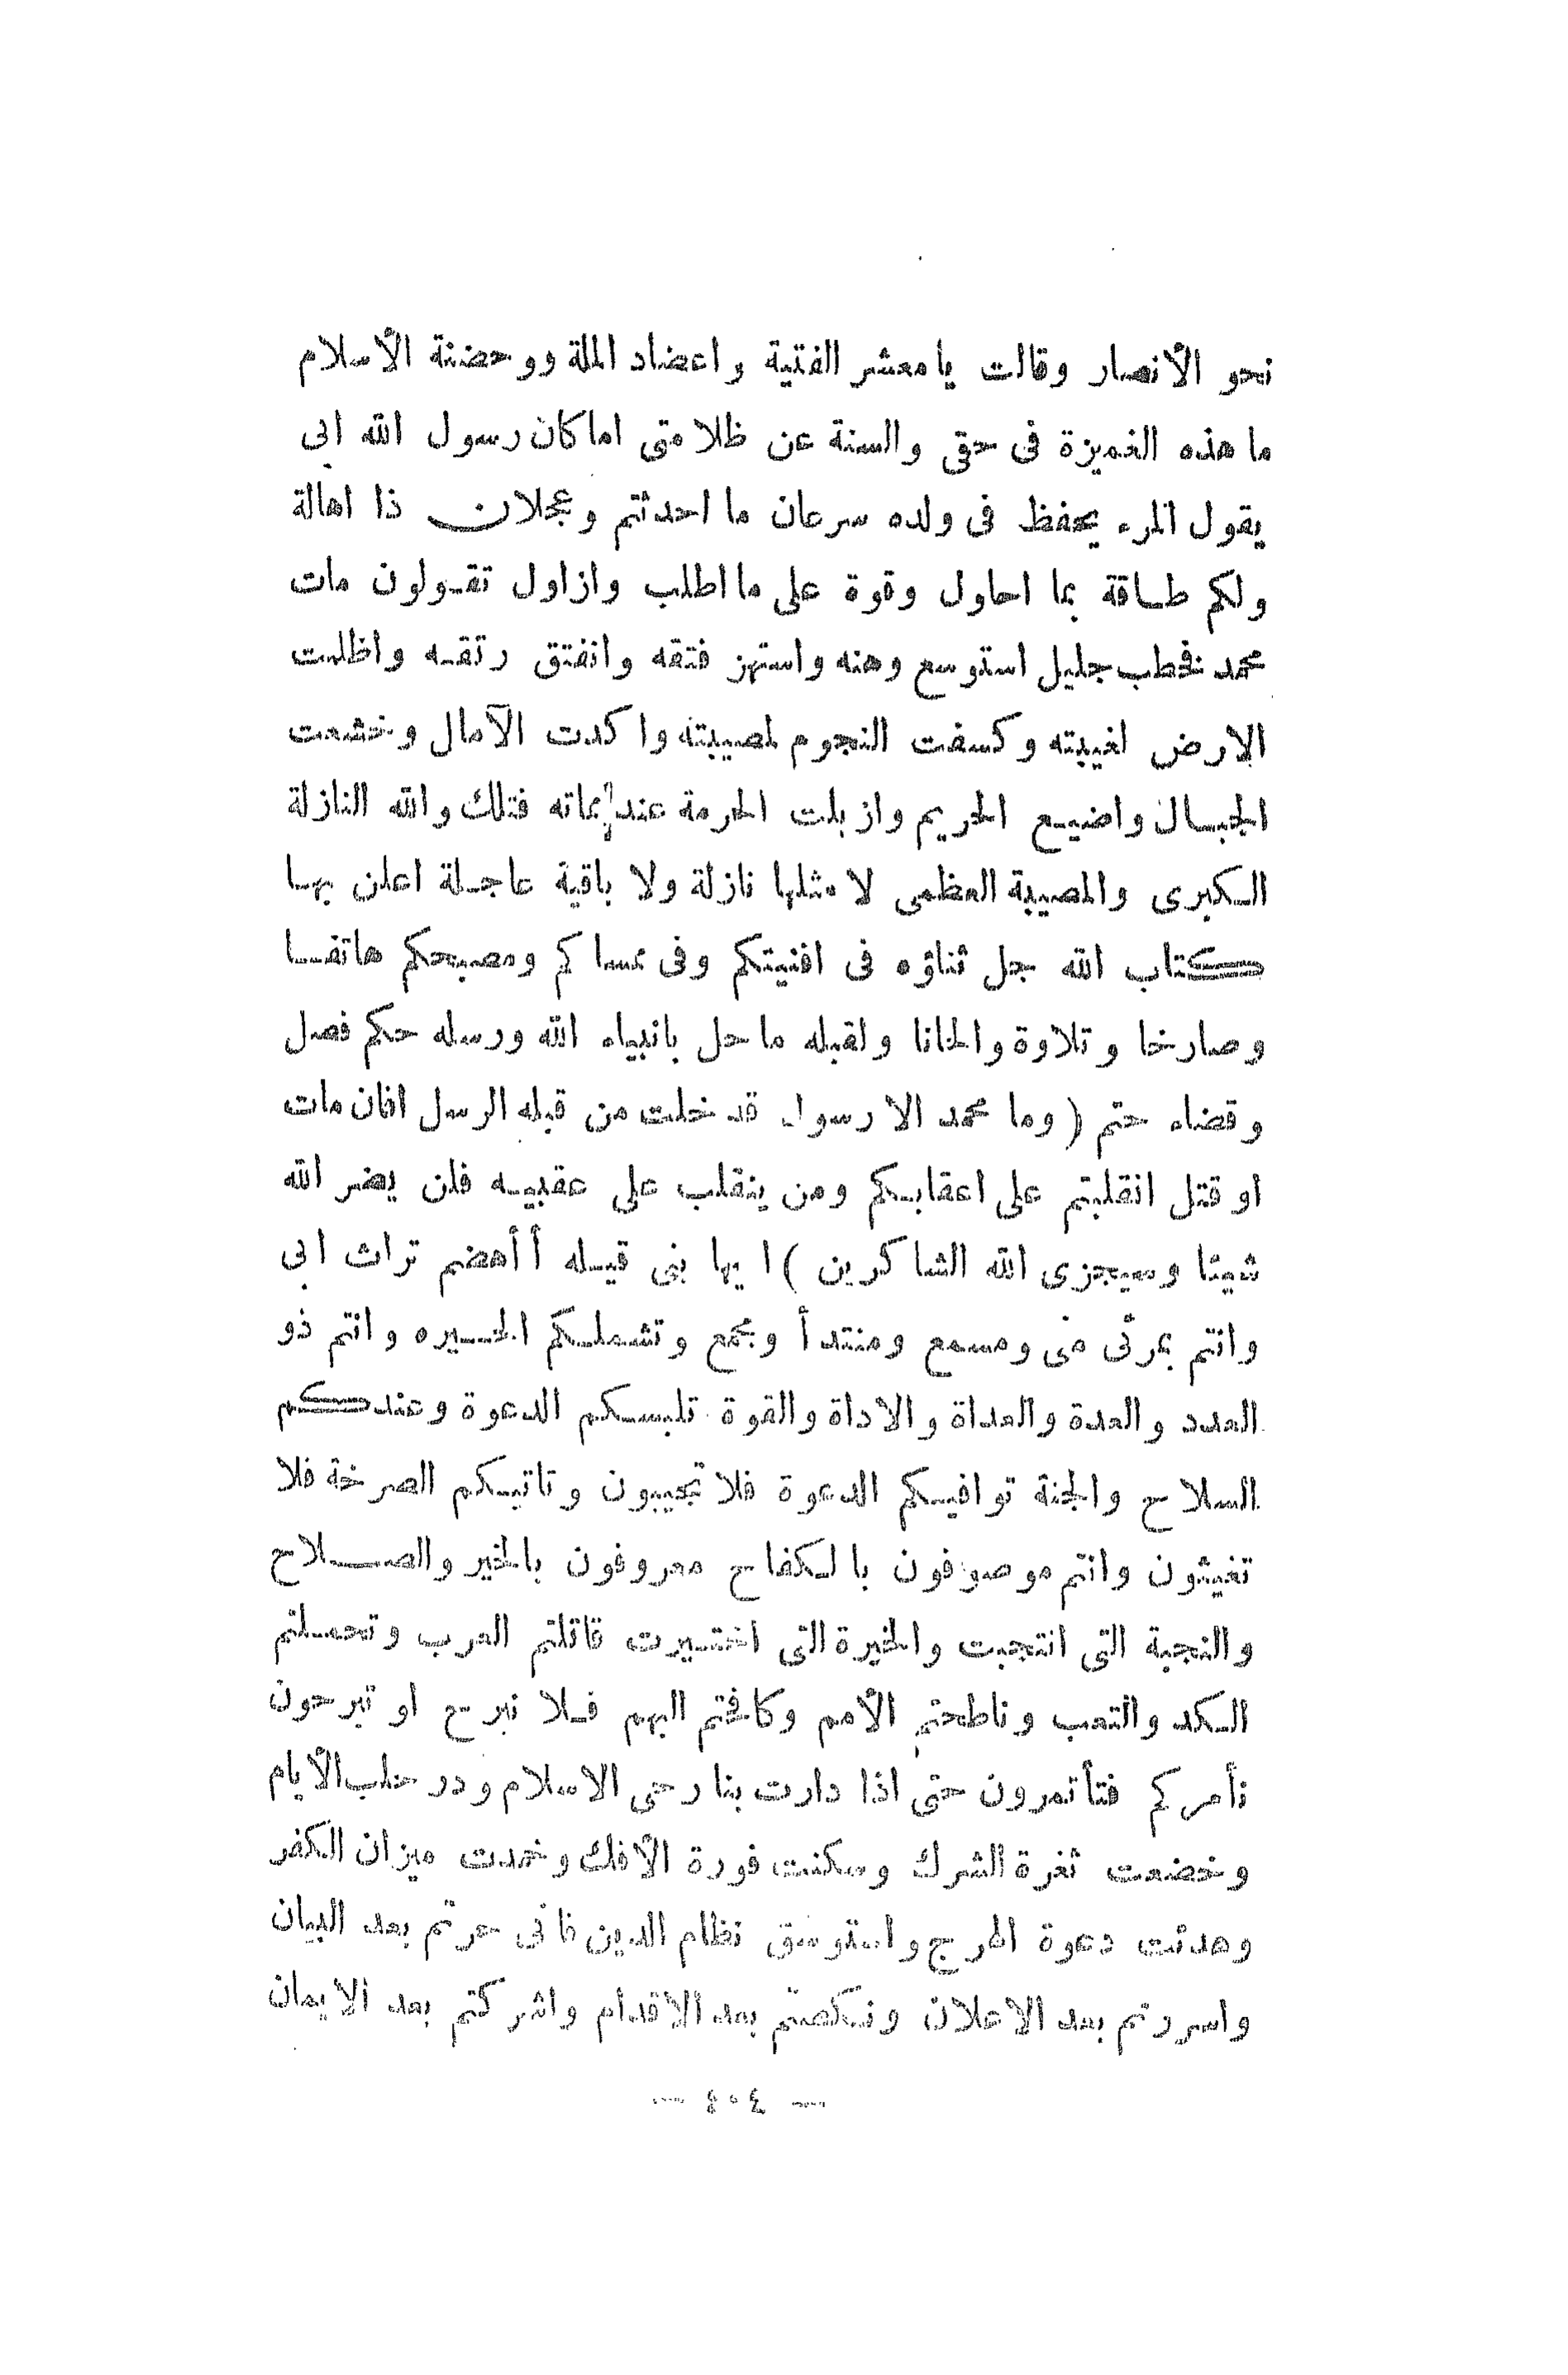 نحو الأنصار وقالت يا معشر الفتية واعضاد الملة ووحضنة الأسلام
ما هذه الغميزة فى حقى والسنة عن ظلامتى اما كان رسول الله ابى
يقول المرء يحفظ فى ولده سرعان ما احدثتم وعجلان ذا اهالة
ولكم طاقة بما احاول وقوة على ما اطلب وازاول تقولون مات
محمد فخطب جليل استوسع وهنه واستهز فتقه وانفتق رتقه واظلمت
الارض لغيبته وكسفت النجوم لمصيبته واكدت الآمال وخشعت
الجبال واضيع الحريم وازيلت الحرمة عند مماته فتلك والله النازلة
الكبرى والمصيبة العظمى لا مثلها نازلة ولا باقية عاجلة اعلن بها
كتاب الله جل ثناؤه فى افنيتكم وفى ممساكم ومصبحكم هاتفا
وصارخا وتلاوة والحانا ولقبله ما حل بانبياء الله ورسله حكم فصل
وقضاء حتم ( وما محمد الا رسول قد خلت من قبله الرسل افان مات
او قتل انقلبتم على اعقابكم ومن ينقلب على عقبيه فلن يضر الله
شيئا وسيجزى الله الشاكرين ) ايها بنى قيله أأهضم تراث ابى
وانتم بمرئى منى ومسمع ومنتدأ ومجمع وتشملكم الخسيره وانتم ذو
العدد والعدة والعداة والاداة والقوة تلبسكم الدعوة وعندكم
السلاح والجنة توافيكم الدعوة فلا تجيبون وتاتيكم الصرخة فلا
تغيثون وانتم موصوفون بالكفاح معروفون بالخير والصلاح
والنجبة التى انتجبت والخيرة التى اختيرت قاتلتم العرب وتحملتم
الكد والتعب وناطحتم الأمم وكافحتم البهم فلا نبرح او تبرحون
نأمركم فتأتمرون حتى اذا دارت بنا رحى الاسلام ودر حلب الأيام
وخضعت ثغرة الشرك وسكنت فورة الأفك وخمدت ميزان الكفر
وهدئت دعوة الهرج واستوسق نظام الدين فانى حرتم بعد البيان
واسررتم بعد الاعلان ونكصتم بعد الاقدام واشركتم بعد الايمان
— ٤٠٤ —